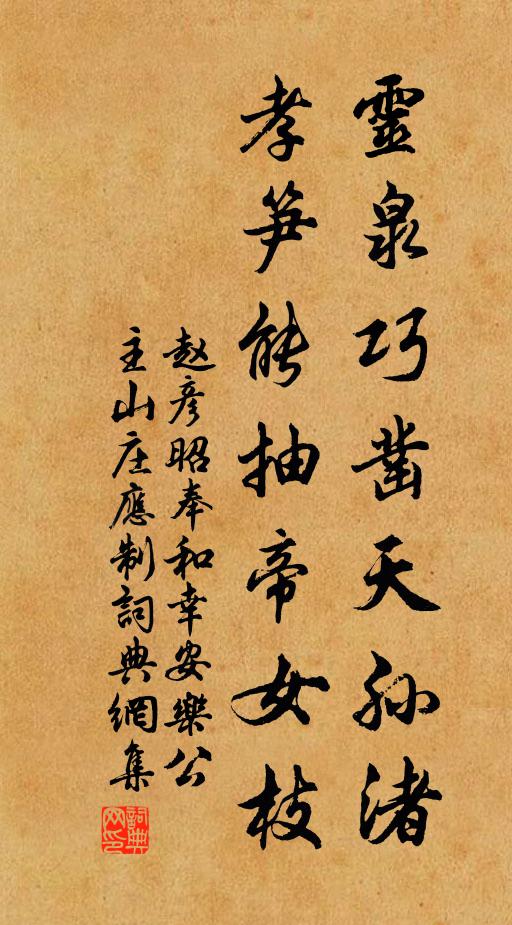 靈泉巧凿天孫渚
孝笋能抽帝女枝
赵彥昭奉和幸安樂公
主山庄應制詞典網集
詞典
网印